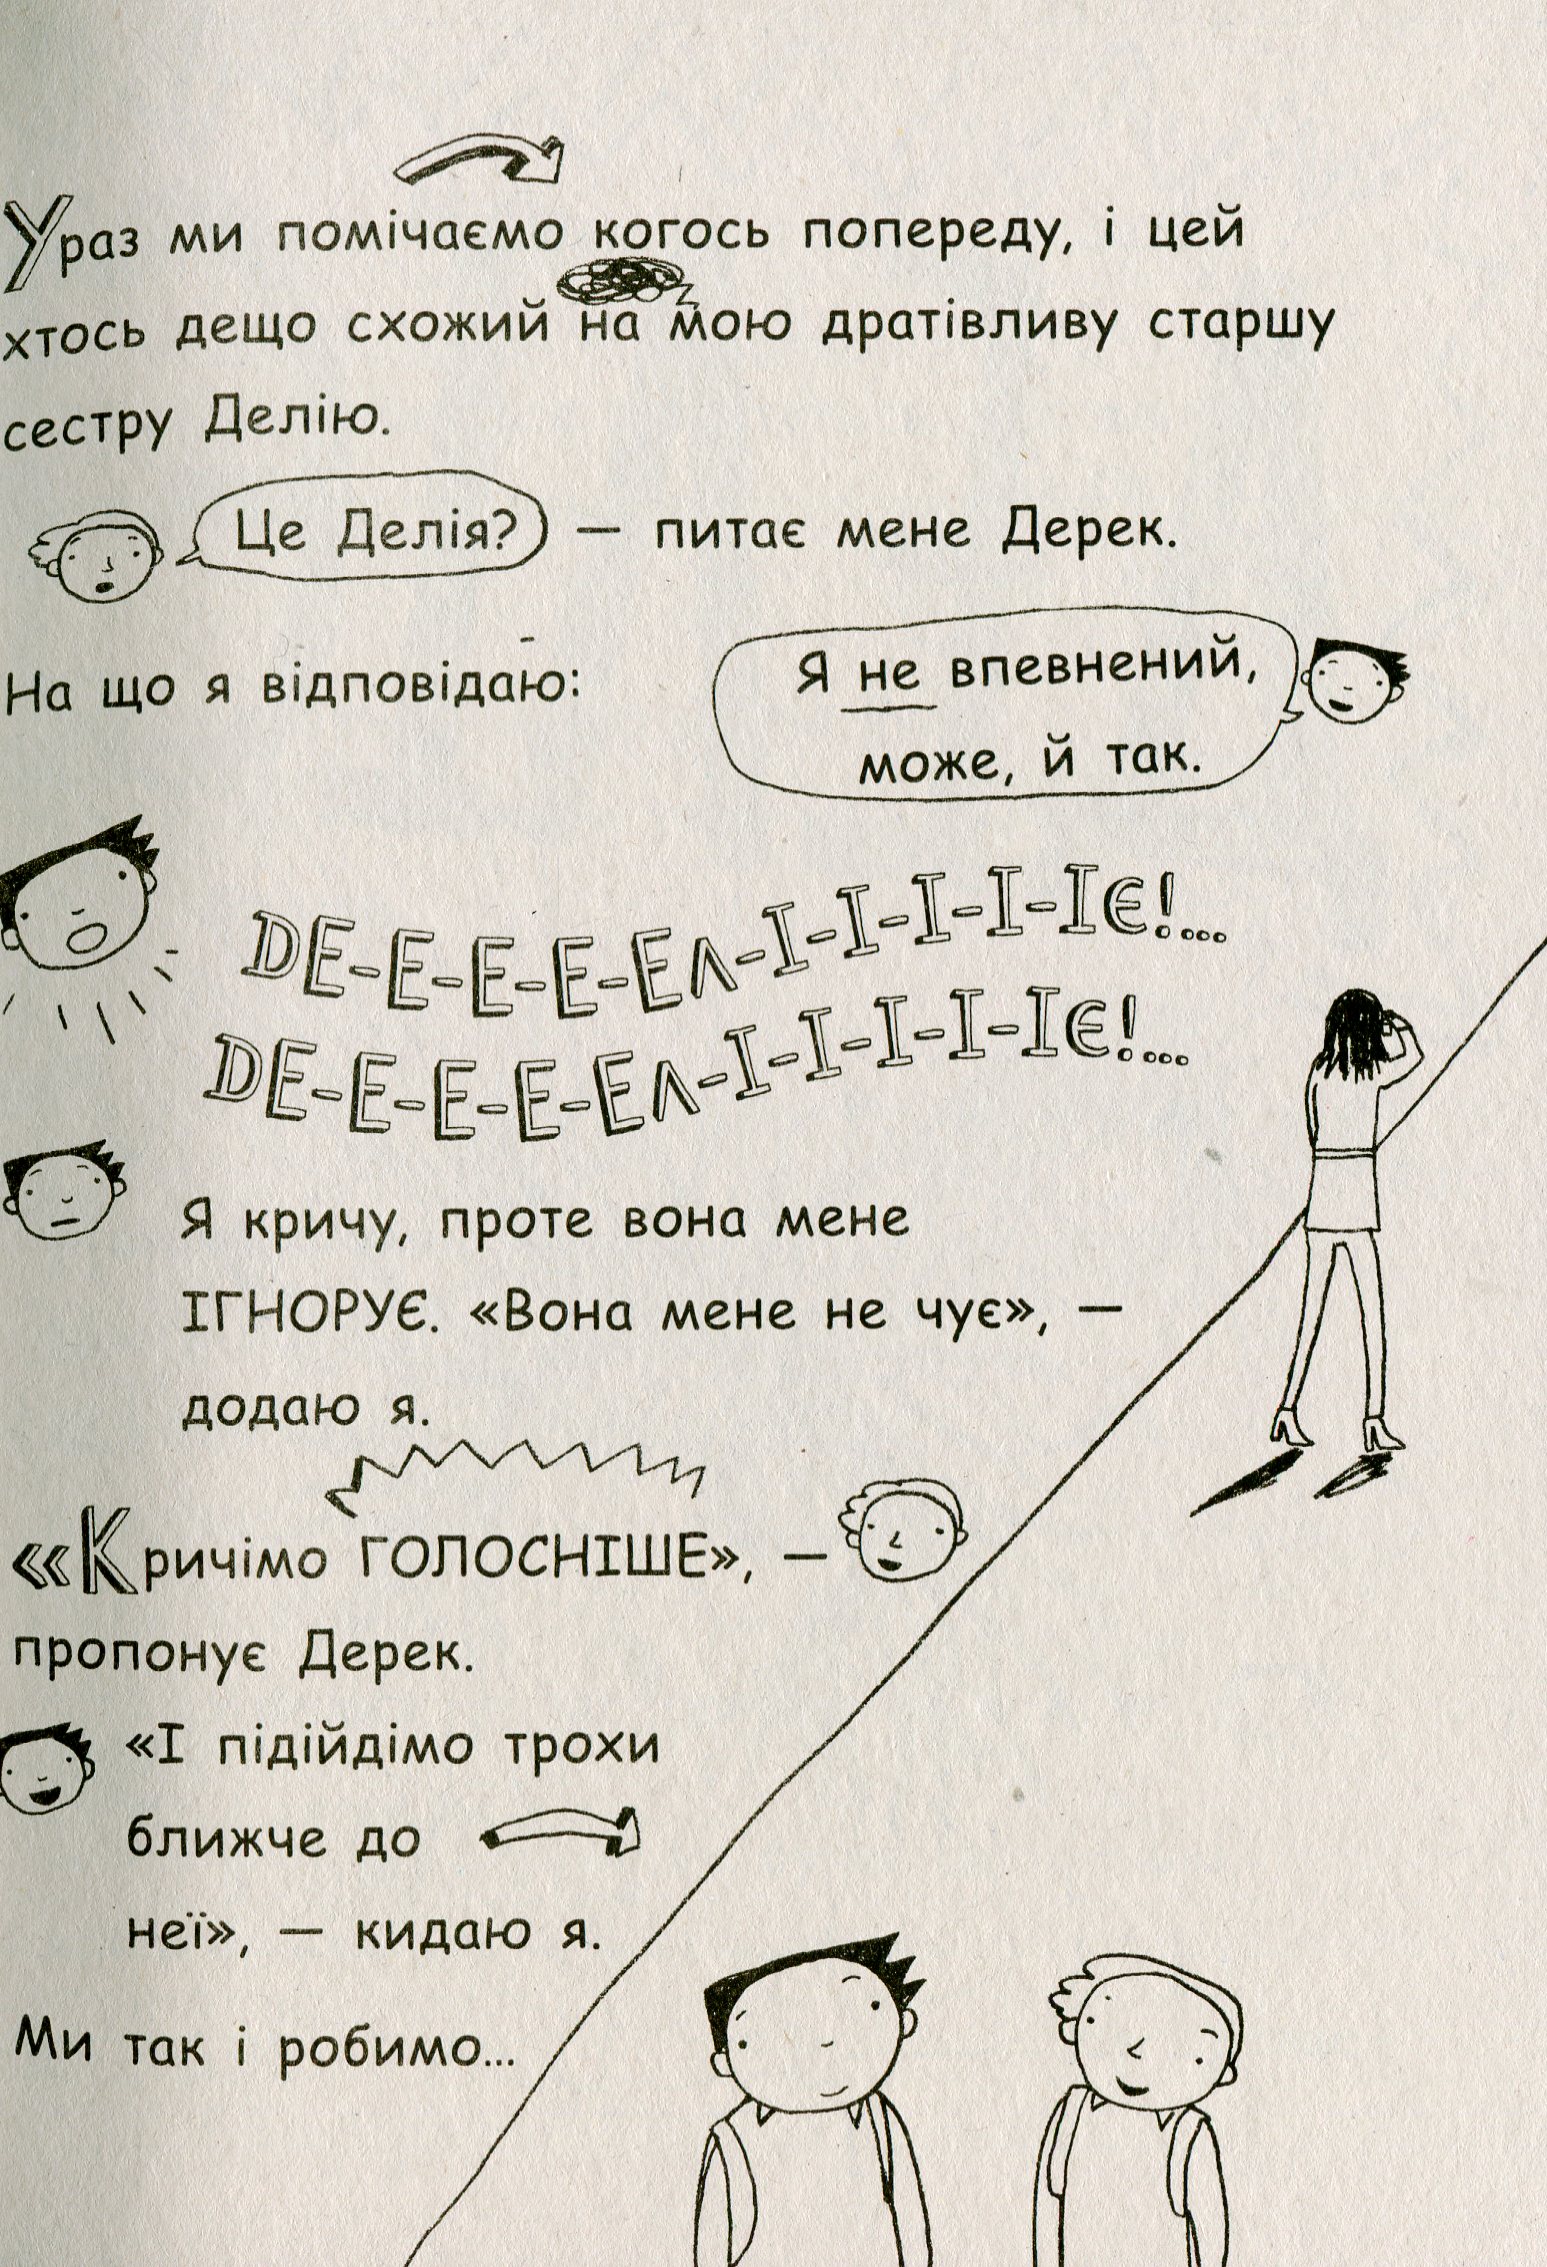 Ураз ми помічаємо когось попереду, і цей
хтось дещо схожий на мою дратівливу старшу
сестру Делію.
Це Делія? — питає мене Дерек.
На що я відповідаю:
Я не впевнений,
може, й так.
DE-E-E-E-EЛ-І-І-І-І-ІЄ!...
DE-E-E-E-EЛ-І-І-І-І-ІЄ!...
Я кричу, проте вона мене
ІГНОРУЄ. «Вона мене не чує», —
додаю я.
«Кричімо ГОЛОСНІШЕ», —
пропонує Дерек.
«І підійдімо трохи
ближче до
неї», — кидаю я.
Ми так і робимо...